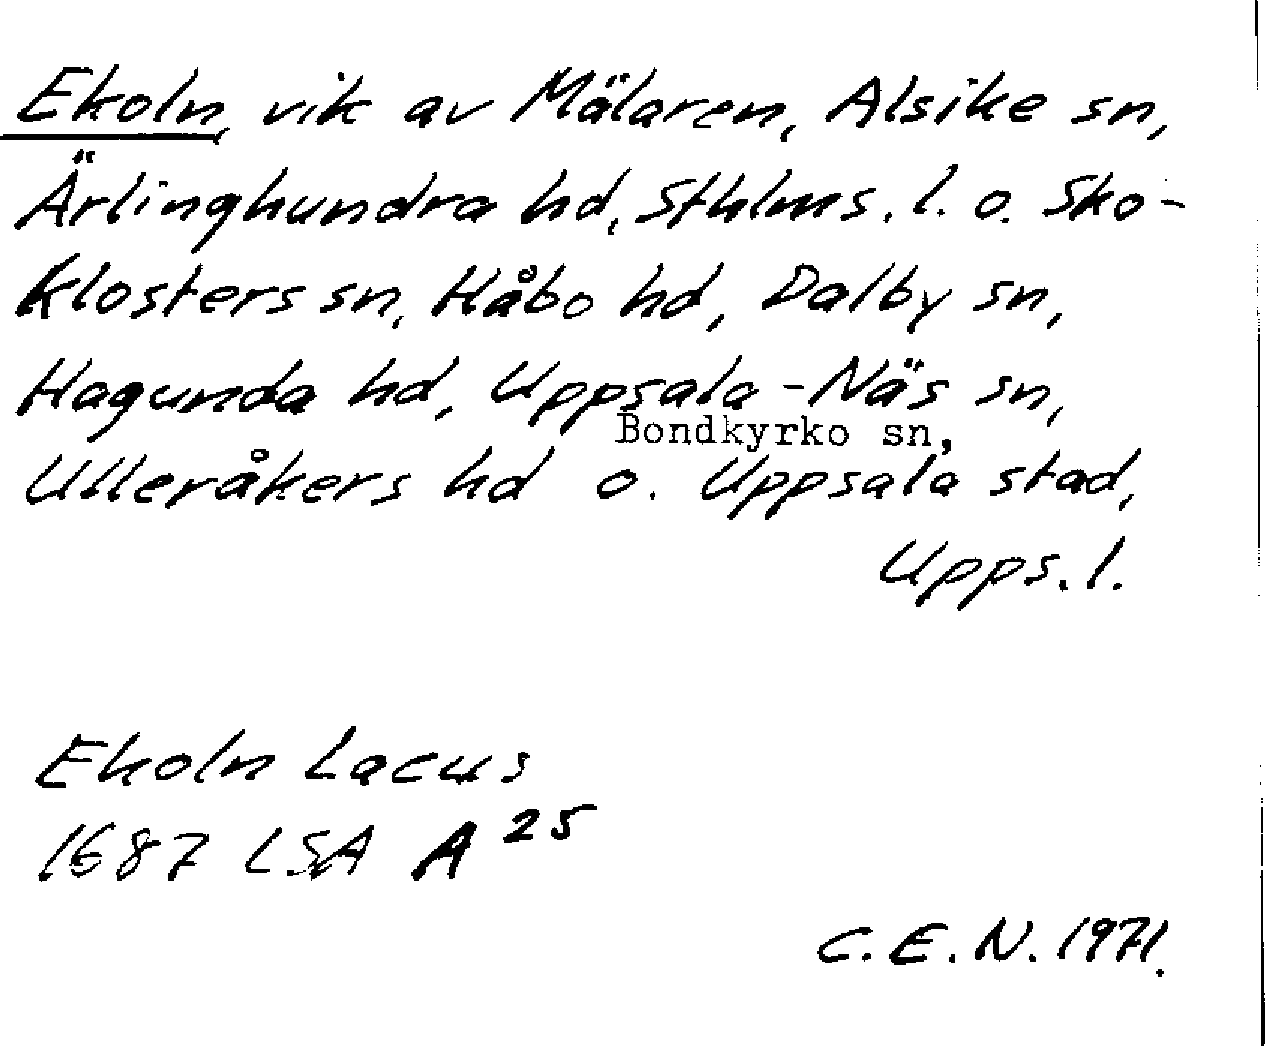 Ekoln, vik av Mälaren, Alsike sn,
Ärlinghundra hd, Sthlms. l. o. Sko-
klosters sn, Håbo hd, Dalby sn,
Hagunda hd, Uppsala-Näs sn,
Bondkyrko sn,
Ulleråkers hd o. Uppsala stad,
Upps. l.
Ekoln Lacus
1687 LSA A 25
C. E. N. 1971.